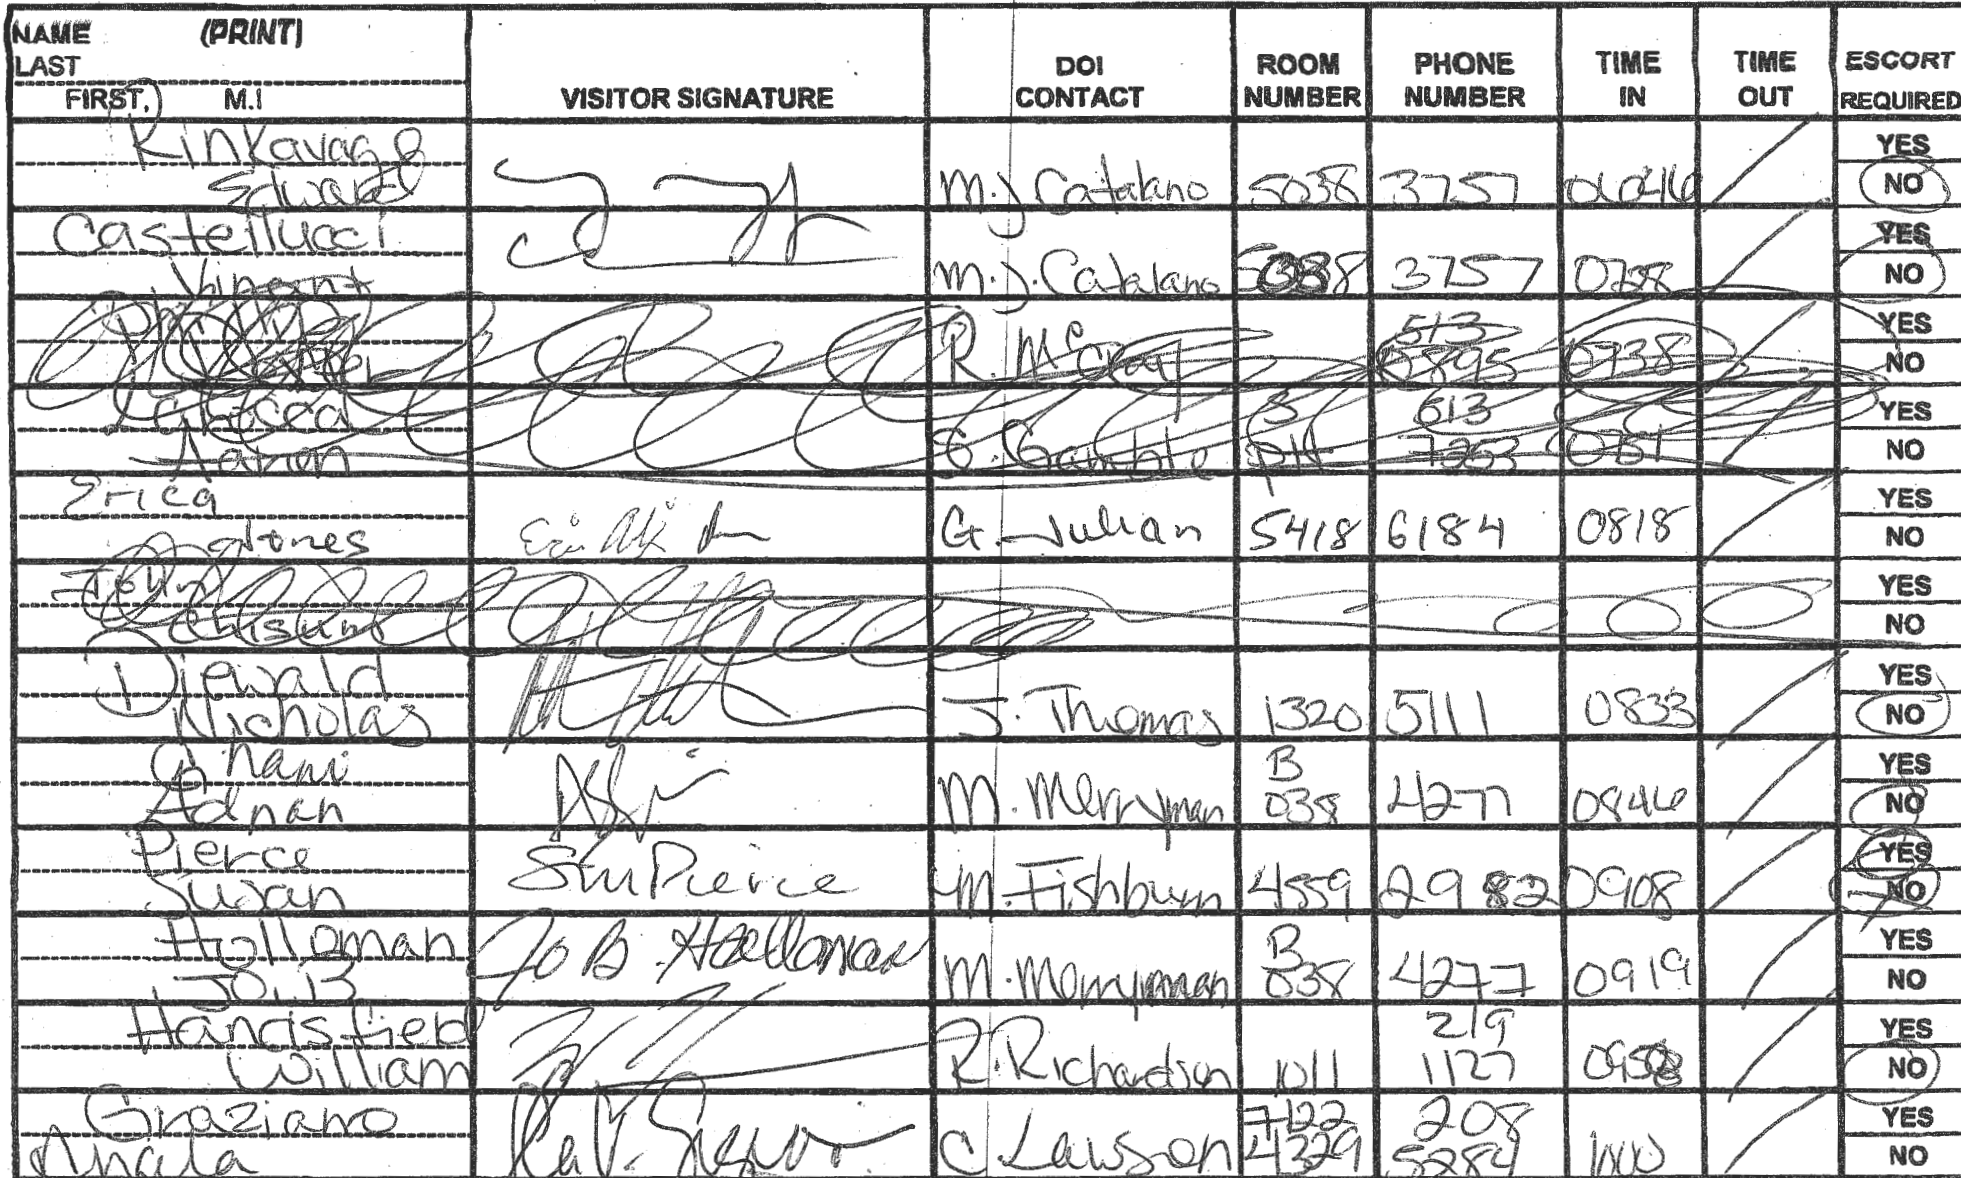 NAME (PRINT)
LAST
FIRST, M.I
VISITOR SIGNATURE
DOI CONTACT
ROOM NUMBER
PHONE NUMBER
TIME IN
TIME OUT
ESCORT REQUIRED
Kinkavage
Edward
M.J Catalano 5038 3757
YES
NO
Castellucci
Vincent
M.J. Catalano 5038 3757 0728
YES
NO
R. McCray
513
0895 0738
YES
NO
Aaron
G. Gamble
613
7253 0751
YES
NO
Erica
Jones
G. Julian 5418 6184 0818
YES
NO
John
Chisum
YES
NO
Diewald
Nicholas
J. Thomas 1320 5111 0833
YES
NO
Ghani
Adnan
M. Merryman
B
038 4277 0846
YES
NO
Pierce
Susan
Sm Pierce
M. Fishburn 4559 2982 0908
YES
NO
Holloman
Jo, B
Jo B. Holloman
M. Merryman
B
038 4277 0919
YES
NO
Hancisfield
William
R. Richardson 1011
219
1127
YES
NO
Graziano
C. Lawson
7122
4329
208
5284
1000
YES
NO